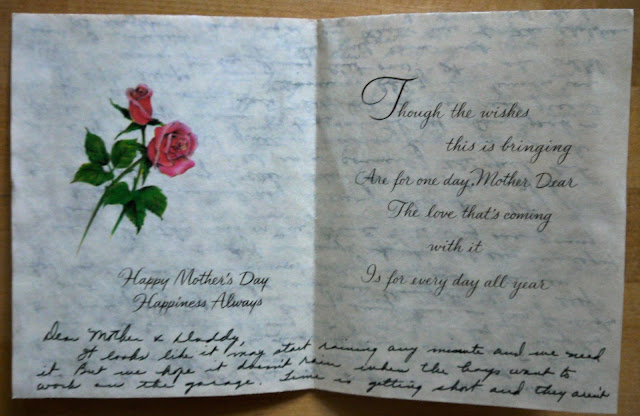 Happy Mother's Day
Happiness Always
Though the wishes
this is bringing
Are for one day, Mother Dear
The love that's coming
with it
Is for every day all year
Dear Mother & Daddy,
It looks like it may start raining any minute and we need
it. But we hope it doesn't rain when the boys want to
work on the garage. Time is getting short and they aren't